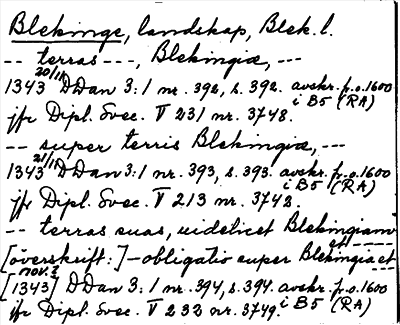 Blekinge, landskap, Blek. l.
-- terras ---, Blekingiæ, ---
1343 20/11 DDan 3:1 nr. 392, s. 392. avskr. p.o. 1600 i B5 (RA)
jfr Dipl. Svec. V 231 nr. 3748.
-- super terris Blekingiæ, ---
1343 21/11 DDan 3:1 nr. 393, s. 393. avskr. p.o. 1600 i B5 (RA)
jfr Dipl. Svec. V 213 nr. 3748.
-- terras suas, uidelicet Blekingiam et ----
[överskrift:] - obligatio super Blekingia et --
[1343] nov.? DDan 3:1 nr. 394, s. 394. avskr. p.o. 1600 i B5 (RA)
jfr Dipl. Svec. V 232 nr. 3749.